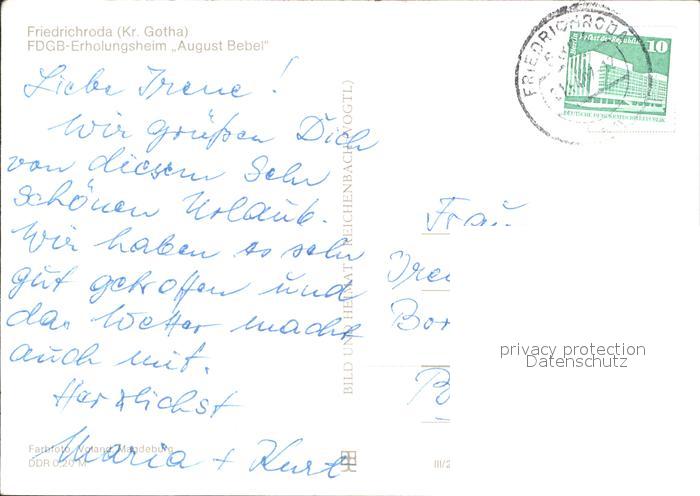 Friedrichroda (Kr. Gotha)
FDGB-Erholungsheim „August Bebel"
Liebe Irene!
Wir grüßen Dich
von diesem sehr
schönen Urlaub.
Wir haben es sehr
gut getroffen und
das Wetter macht
auch mit.
Herzlichst
Maria + Kurt
Farbfoto: Voland, Magdeburg
DDR 0,20 M
BILD UND HEIMAT REICHENBACH (VOGTL)
III/2
FRIEDRICHRODA
Palast der Republik
10
DEUTSCHE DEMOKRATISCHE REPUBLIK
Frau
Iren
Bor
privacy protection
Datenschutz